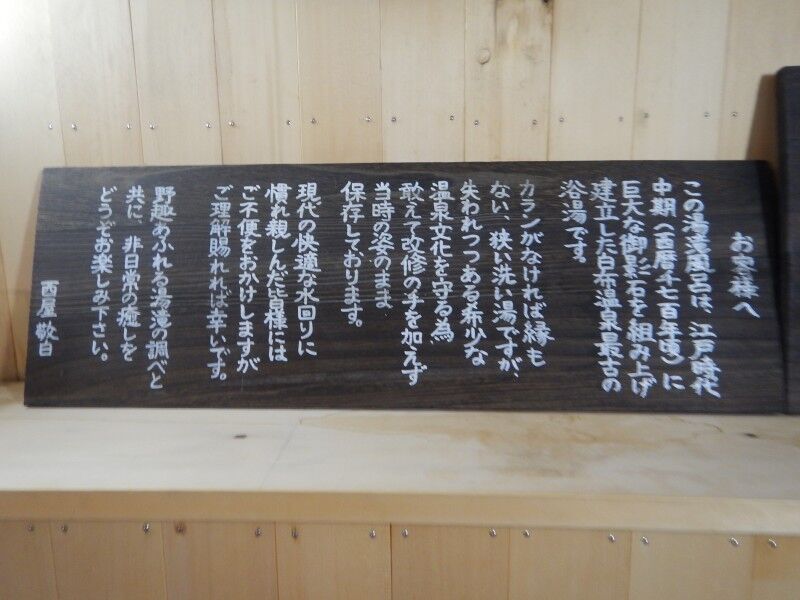 お客様へ
この湯滝風呂は、江戸時代
中期(西暦千七百年頃)に
巨大な御影石を組み上げ
建立した白布温泉最古の
浴湯です。
カランがなければ縁も
ない、狭い洗い湯ですが、
失われつつある希少な
温泉文化を守る為
敢えて改修の手を加えず
当時の姿のまま
保存しております。
現代の快適な水回りに
慣れ親しんだ皆様には
ご不便をおかけしますが
ご理解賜れれば幸いです。
野趣あふれる湯滝の調べと
共に、非日常の癒しを
どうぞお楽しみ下さい。
西屋 敬白